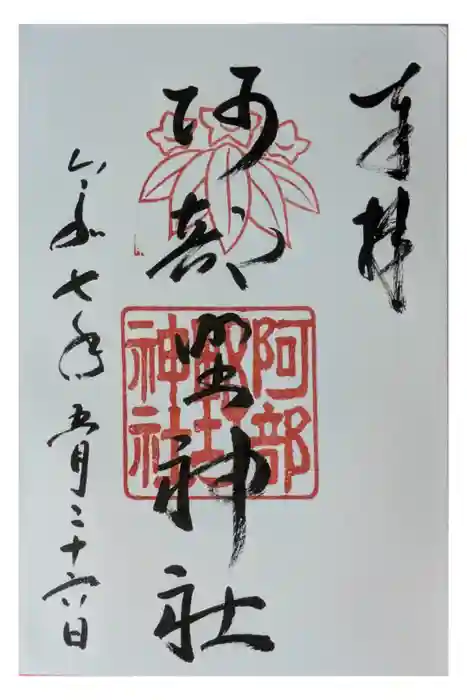 奉拝
阿部野神社
阿部野神社
令和七年五月二十六日